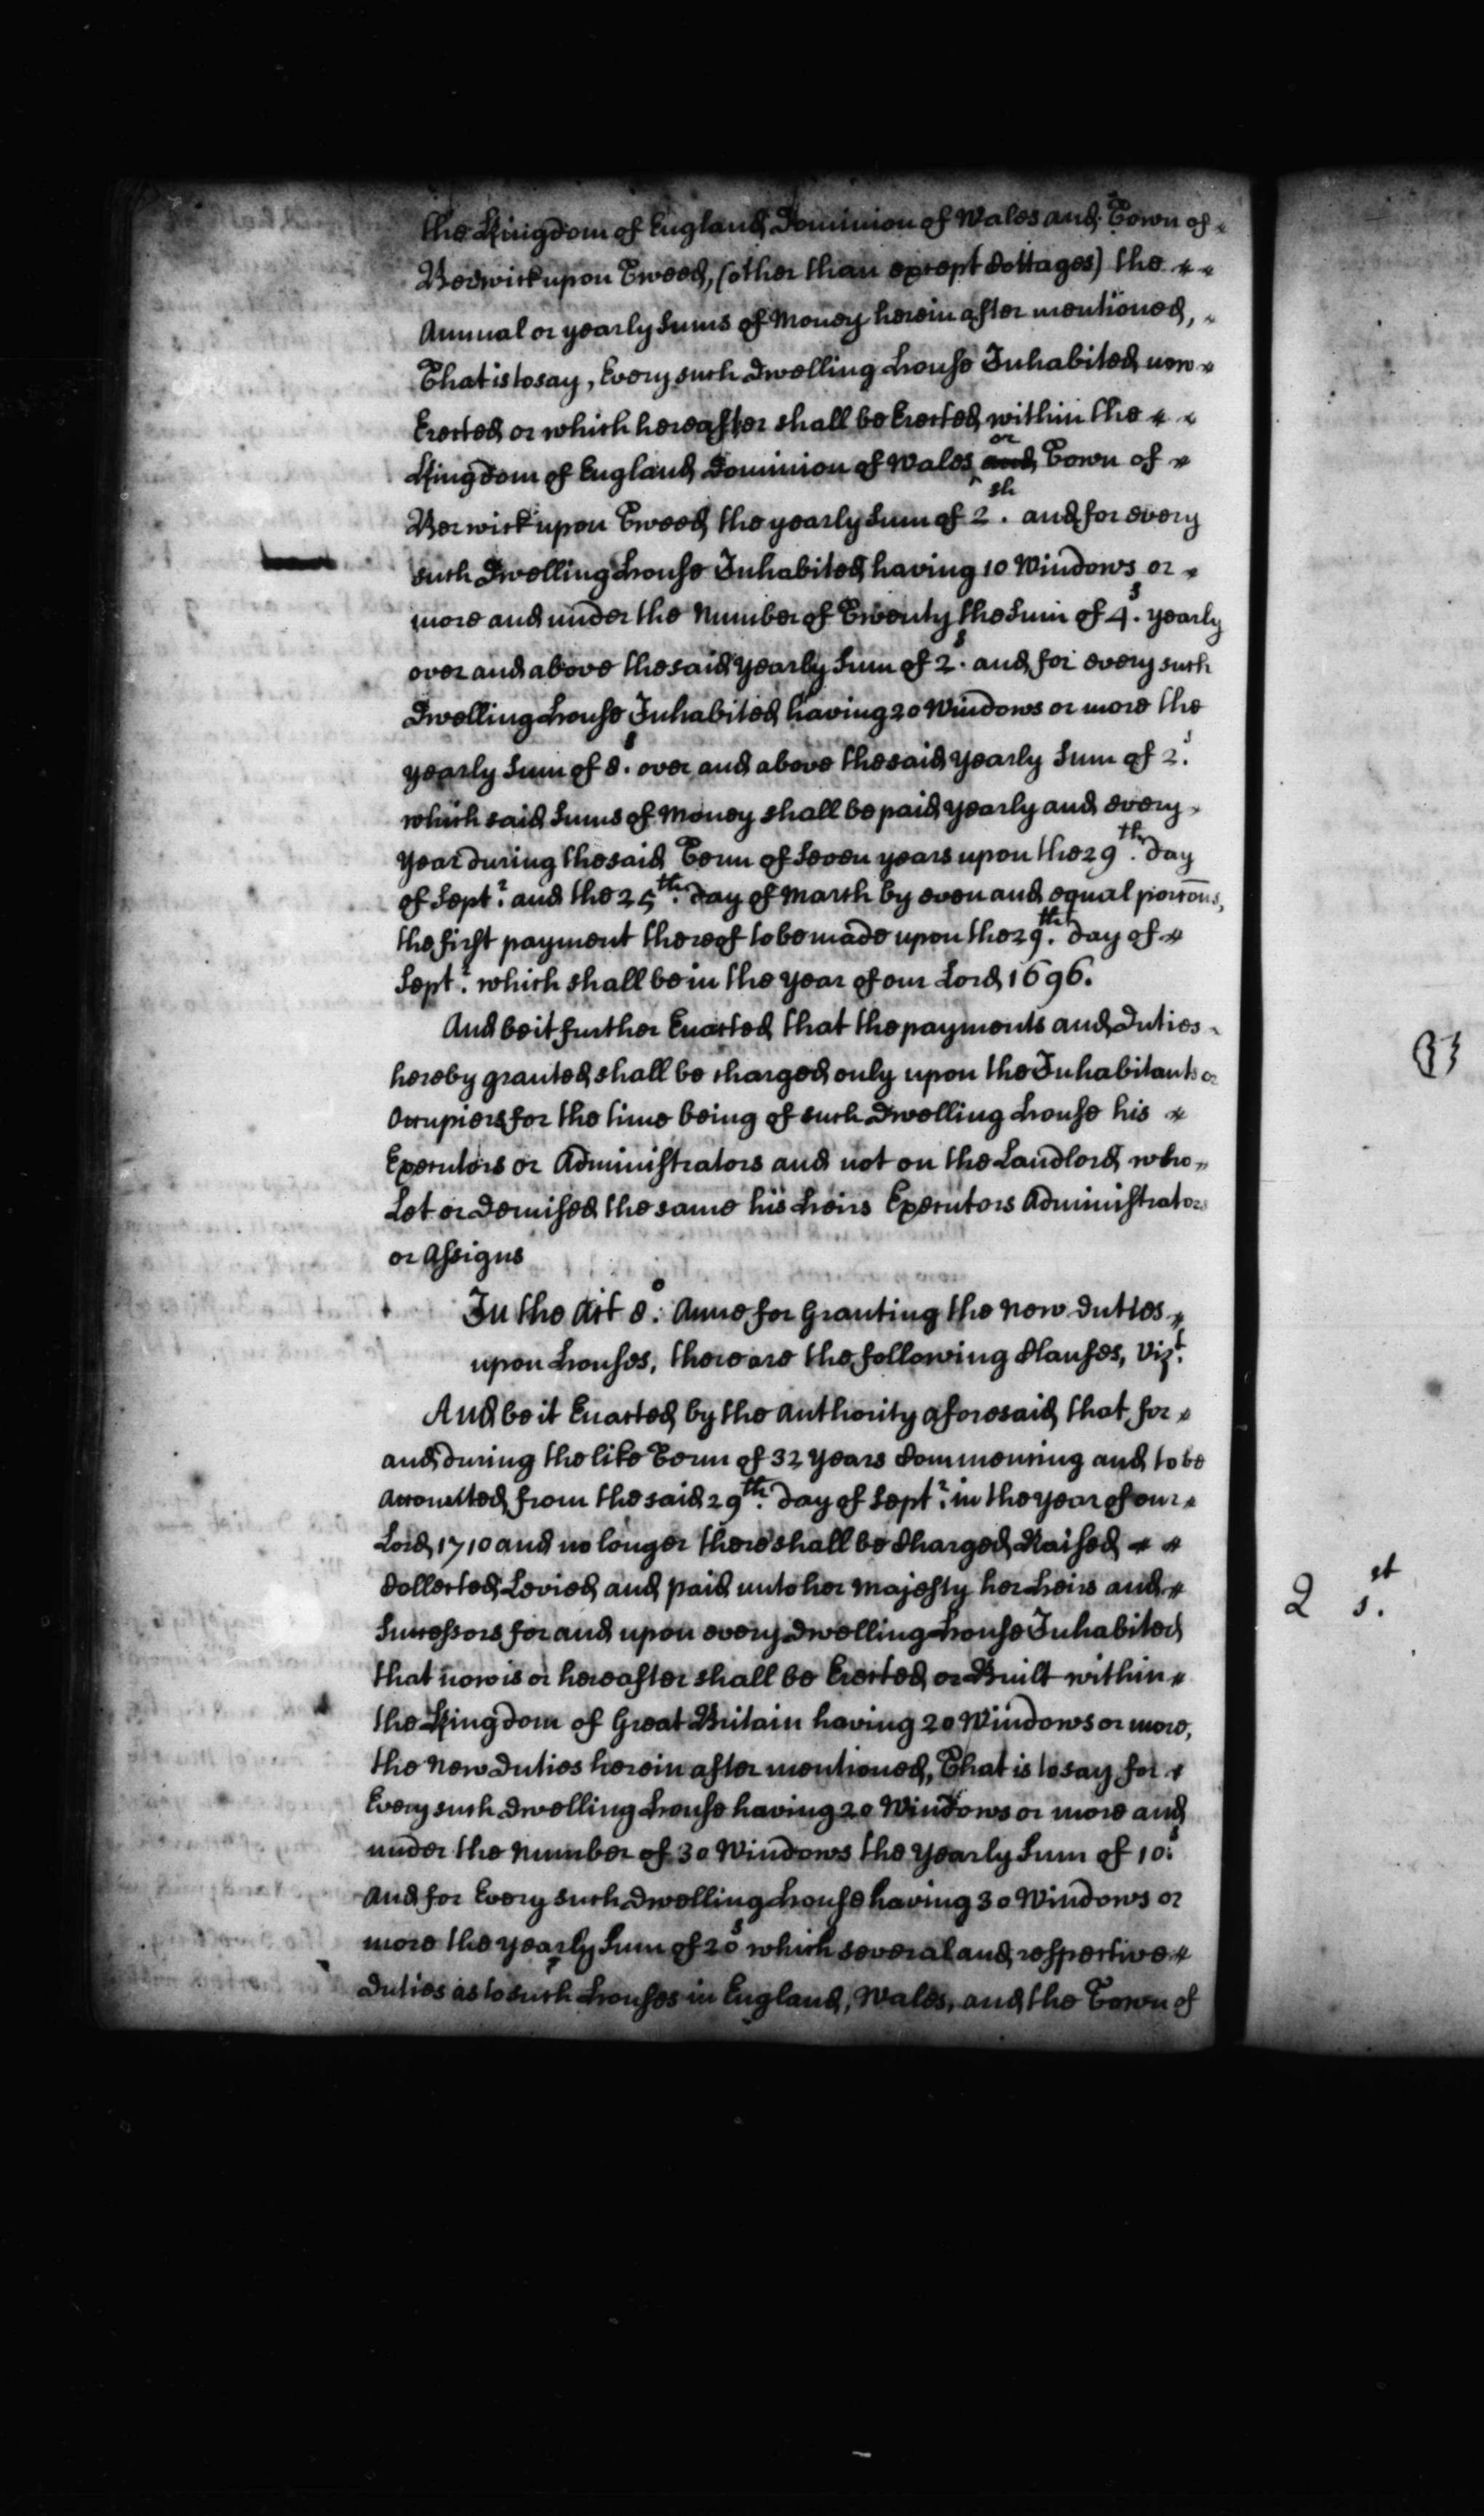 the Kingdom of England, Dominion of Wales and Town of
Berwick upon Tweed, (other than except Cottages) the
Annual or yearly Sums of Money herein after mentioned,
That is to say, Every such Dwelling House Inhabited now
Erected or which hereafter shall be Erected within the
Kingdom of England Dominion of Wales ^or and Town of
Berwick upon Tweed the yearly Sum of 2.sh and for every
such Dwelling House Inhabited having 10 Windows or
more and under the Number of Twenty the Sum of 4.s yearly
over and above the said yearly Sum of 2.s and for every such
Dwelling House Inhabited having 20 Windows or more the
yearly Sum of 8.s over and above the said yearly Sum of 2.s
which said Sums of Money shall be paid yearly and every
year during the said Term of Seven years upon the 29.th day
of Sept.r and the 25.th day of March by even and equal porcons,
the first payment thereof to be made upon the 29.th day of
Sept.r which shall be in the year of our Lord 1696.
And be it further Enacted that the payments and Duties
hereby granted shall be charged only upon the Inhabitants or
Occupiers for the time being of such Dwelling House his
Executors or Administrators and not on the Landlord who
Let or Demised the same his Heirs Executors Administrators
or Assigns
In the Act 8.o Anne for Granting the New Duties
upon Houses, there are the following Clauses, Viz.t
And be it Enacted by the Authority aforesaid that for
and during the like Term of 32 years Commencing and to be
Accounted from the said 29.th day of Sept.r in the year of our
Lord 1710 and no longer there shall be Charged, Raised
Collected Levied and paid unto her Majesty her Heirs and
Successors for and upon every Dwelling House Inhabited
that now is or hereafter shall be Erected or Built within
the Kingdom of Great Britain having 20 Windows or more,
the New Duties herein after mentioned, That is to say for
Every such Dwelling House having 20 Windows or more and
under the Number of 30 Windows the yearly Sum of 10.s
And for Every such Dwelling House having 30 Windows or
more the yearly Sum of 20s which several and respective
Duties as to such Houses in England, Wales, and the Town of
2 st s.